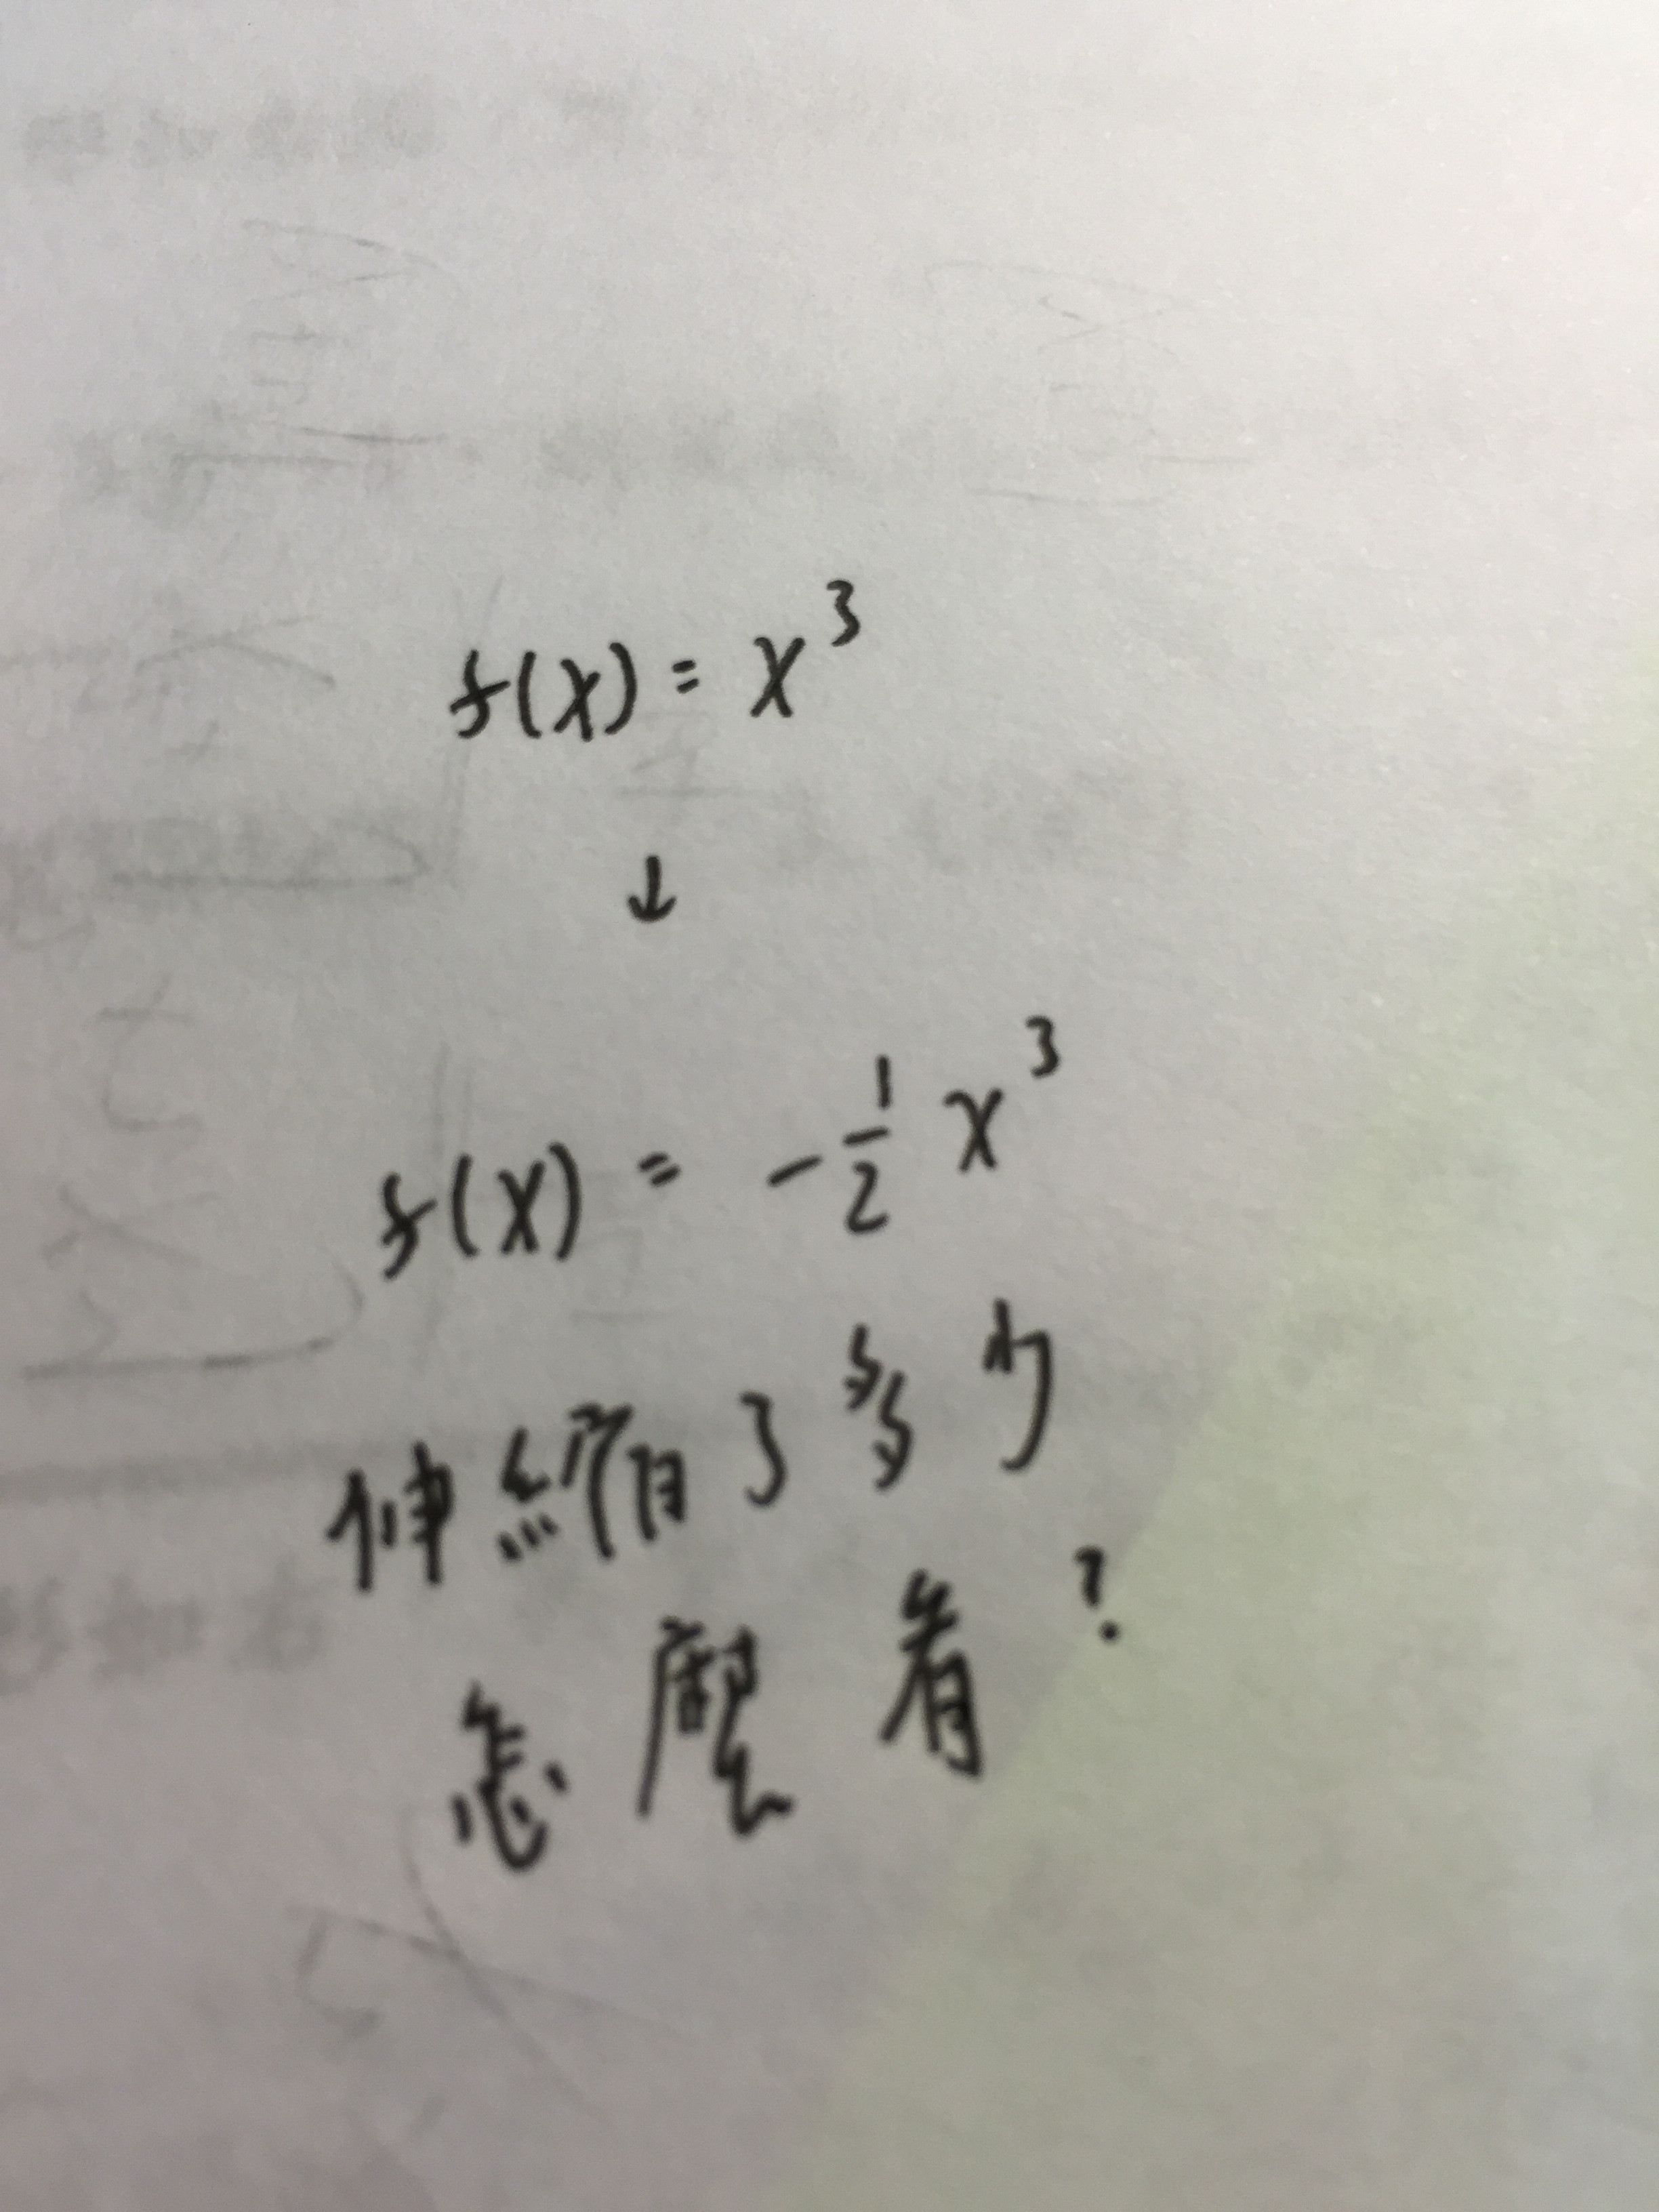 f(x) = x³
↓
f(x) = -½ x³
伸縮了多少
怎麼看?